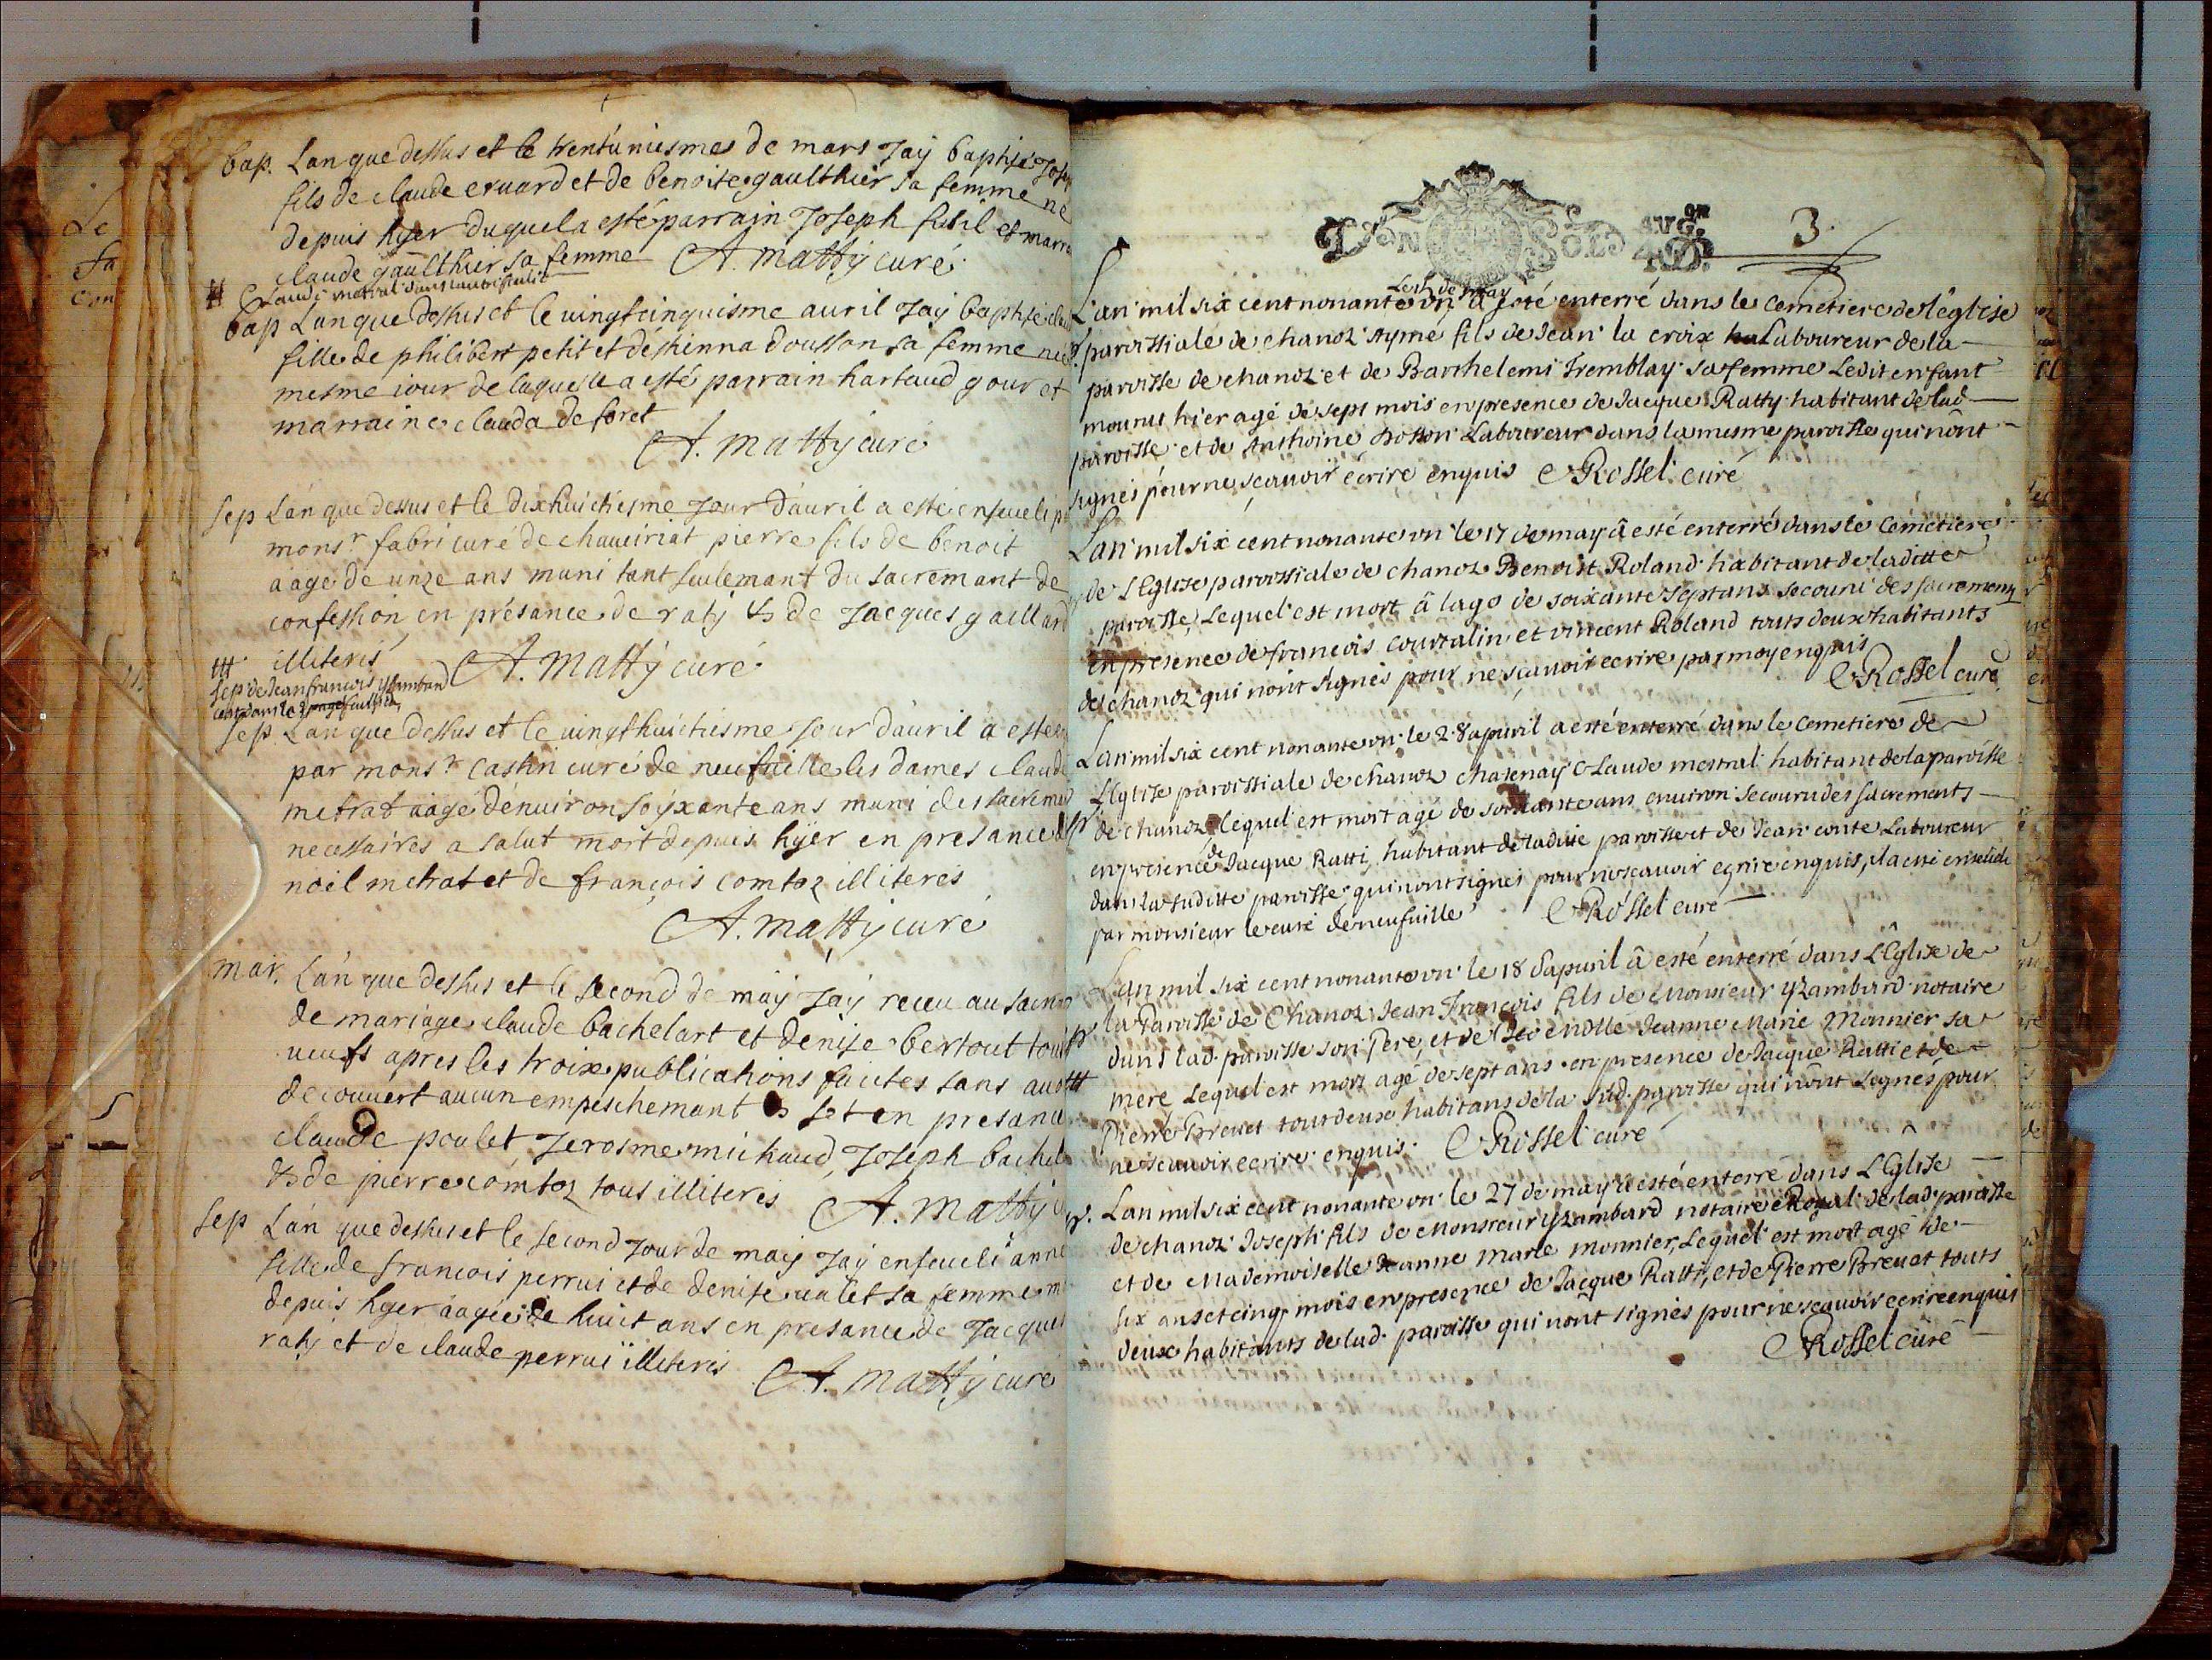 bap. Lan que dessus et le trentuniesme de mars Jay baptisé
fils de claude eruard et de benoite gaulthier sa femme né
depuis hyer duquel a esté parrain Joseph futil et marr
claude gaulthier sa femme A. Mattÿ curé
Claude mestral dans
bap Lan que dessus et le uingt cinquisme auril Jay baptisé
fille de philibert petit et déthienna dousson sa femme née
mesme iour de laquelle a esté parrain hartaud gour et
marraine clauda de foret
A. Mattÿ curé
sep Lan que dessus et le dixhuictiesme Jour dauril a esté enseueli p
monsr fabri curé de chaueiriat pierre fils de benoit
aage de unze ans muni tant seulemant du sacremant de
confession en présance de ratÿ & de Jacques gaillard
illiterés A. Mattÿ curé
sep de Jean francois yzambard
est dans la page
sep. Lan que dessus et le uingthuictiesme Jour dauril a esté
par monsr castin curé de neufuille les dames claude
metrat aagé dénuiron soyxante ans muni des sacremen
necessaires a salut mort depuis hÿer en presance d
noel metrat et de françois comtoz illiteres
A. Mattÿ curé
mar. Lan que dessus et le second de maÿ Jaÿ receu au sacre
de mariage claude bachelart et denise bertout tou
ueufs apres les troix publications faictes sans auoir
decouuert aucun empeschemant & set en presance
claude poulet Jerosme michaud, Joseph bachel
& de pierre comtoz tous illiterés A. Mattÿ c
sep Lan que dessus et le second Jour de maÿ Jaÿ enseueli anne
fille de francois perrui et de denise ualet sa femme m
depuis hyer aagée de huit ans en presance de Jacques
ratÿ et de claude perrui illiterés
A. Mattÿ curé
LYON SOLS AVG.on 3.
Le de may
Lan mil six cent nonante un a esté enterré dans le cemetiere de léglise
paroissiale de chanoz Aymé fils de Jean la croix Laboureur de la
paroisse de chanoz et de Barthelemi Tremblay sa femme Ledit enfant
mourut hier agé de sept mois en presence de Jacque Ratty habitant de lad
paroisse et de Anthoine Laboureur dans la mesme paroisse qui nont
signés pour ne scauoir écrire enquis Rossel curé
Lan mil six cent nonante un le 17 de may a esté enterré dans le Cemetiere
de l'Eglise paroissiale de chanoz Benoist Roland habitant de laditte
paroisse, Lequel est mort à lage de soixante sept ans secouru des sacrements
en presence de francois courtalin et vincent Roland touts deux habitants
de chanoz qui n'ont signés pour ne scauoir ecrire par moy enquis
Rossel curé
Lan mil six cent nonante un le 28 apuril a esté enterré dans le Cemetiere de
l'Eglise paroissiale de chanoz chatenay Claude mestral habitant de la paroisse
de chanoz lequel est mort agé de soixante ans enuiron secouru des sacrements
en presence de Jacque Ratti habitant de ladite paroisse et de Jean conte Laboureur
dans la suditte paroisse qui n'ont signés pour ne scauoir ecrire enquis, il a esté enseueli
par monsieur le curé de neufuille Rossel curé
Lan mil six cent nonante un le 18 d'apuril a esté enterré dans L'Eglise de
la Paroisse de Chanoz Jean François fils de Monsieur yzambard notaire
dans lad. paroisse son Pere, et de Jeanne Marie Monnier sa
mere Lequel est mort agé de sept ans en presence de Jacque Ratti et de
Pierre Breuet tout deux habitans de la sud. paroisse qui n'ont signés pour
ne scauoir ecrire enquis. Rossel curé
Lan mil six cent nonante un le 27 de may a esté enterré dans L'Eglise
de chanoz Joseph fils de Monsieur yzambard notaire Royal de lad. paroisse
et de Mademoiselle Jeanne Marie monnier, Lequel est mort agé de
six ans et cinq mois en presence de Jacque Ratti, et de Pierre Breuet touts
deux habitants de lad. paroisse qui n'ont signés pour ne scauoir ecrire enquis
Rossel curé